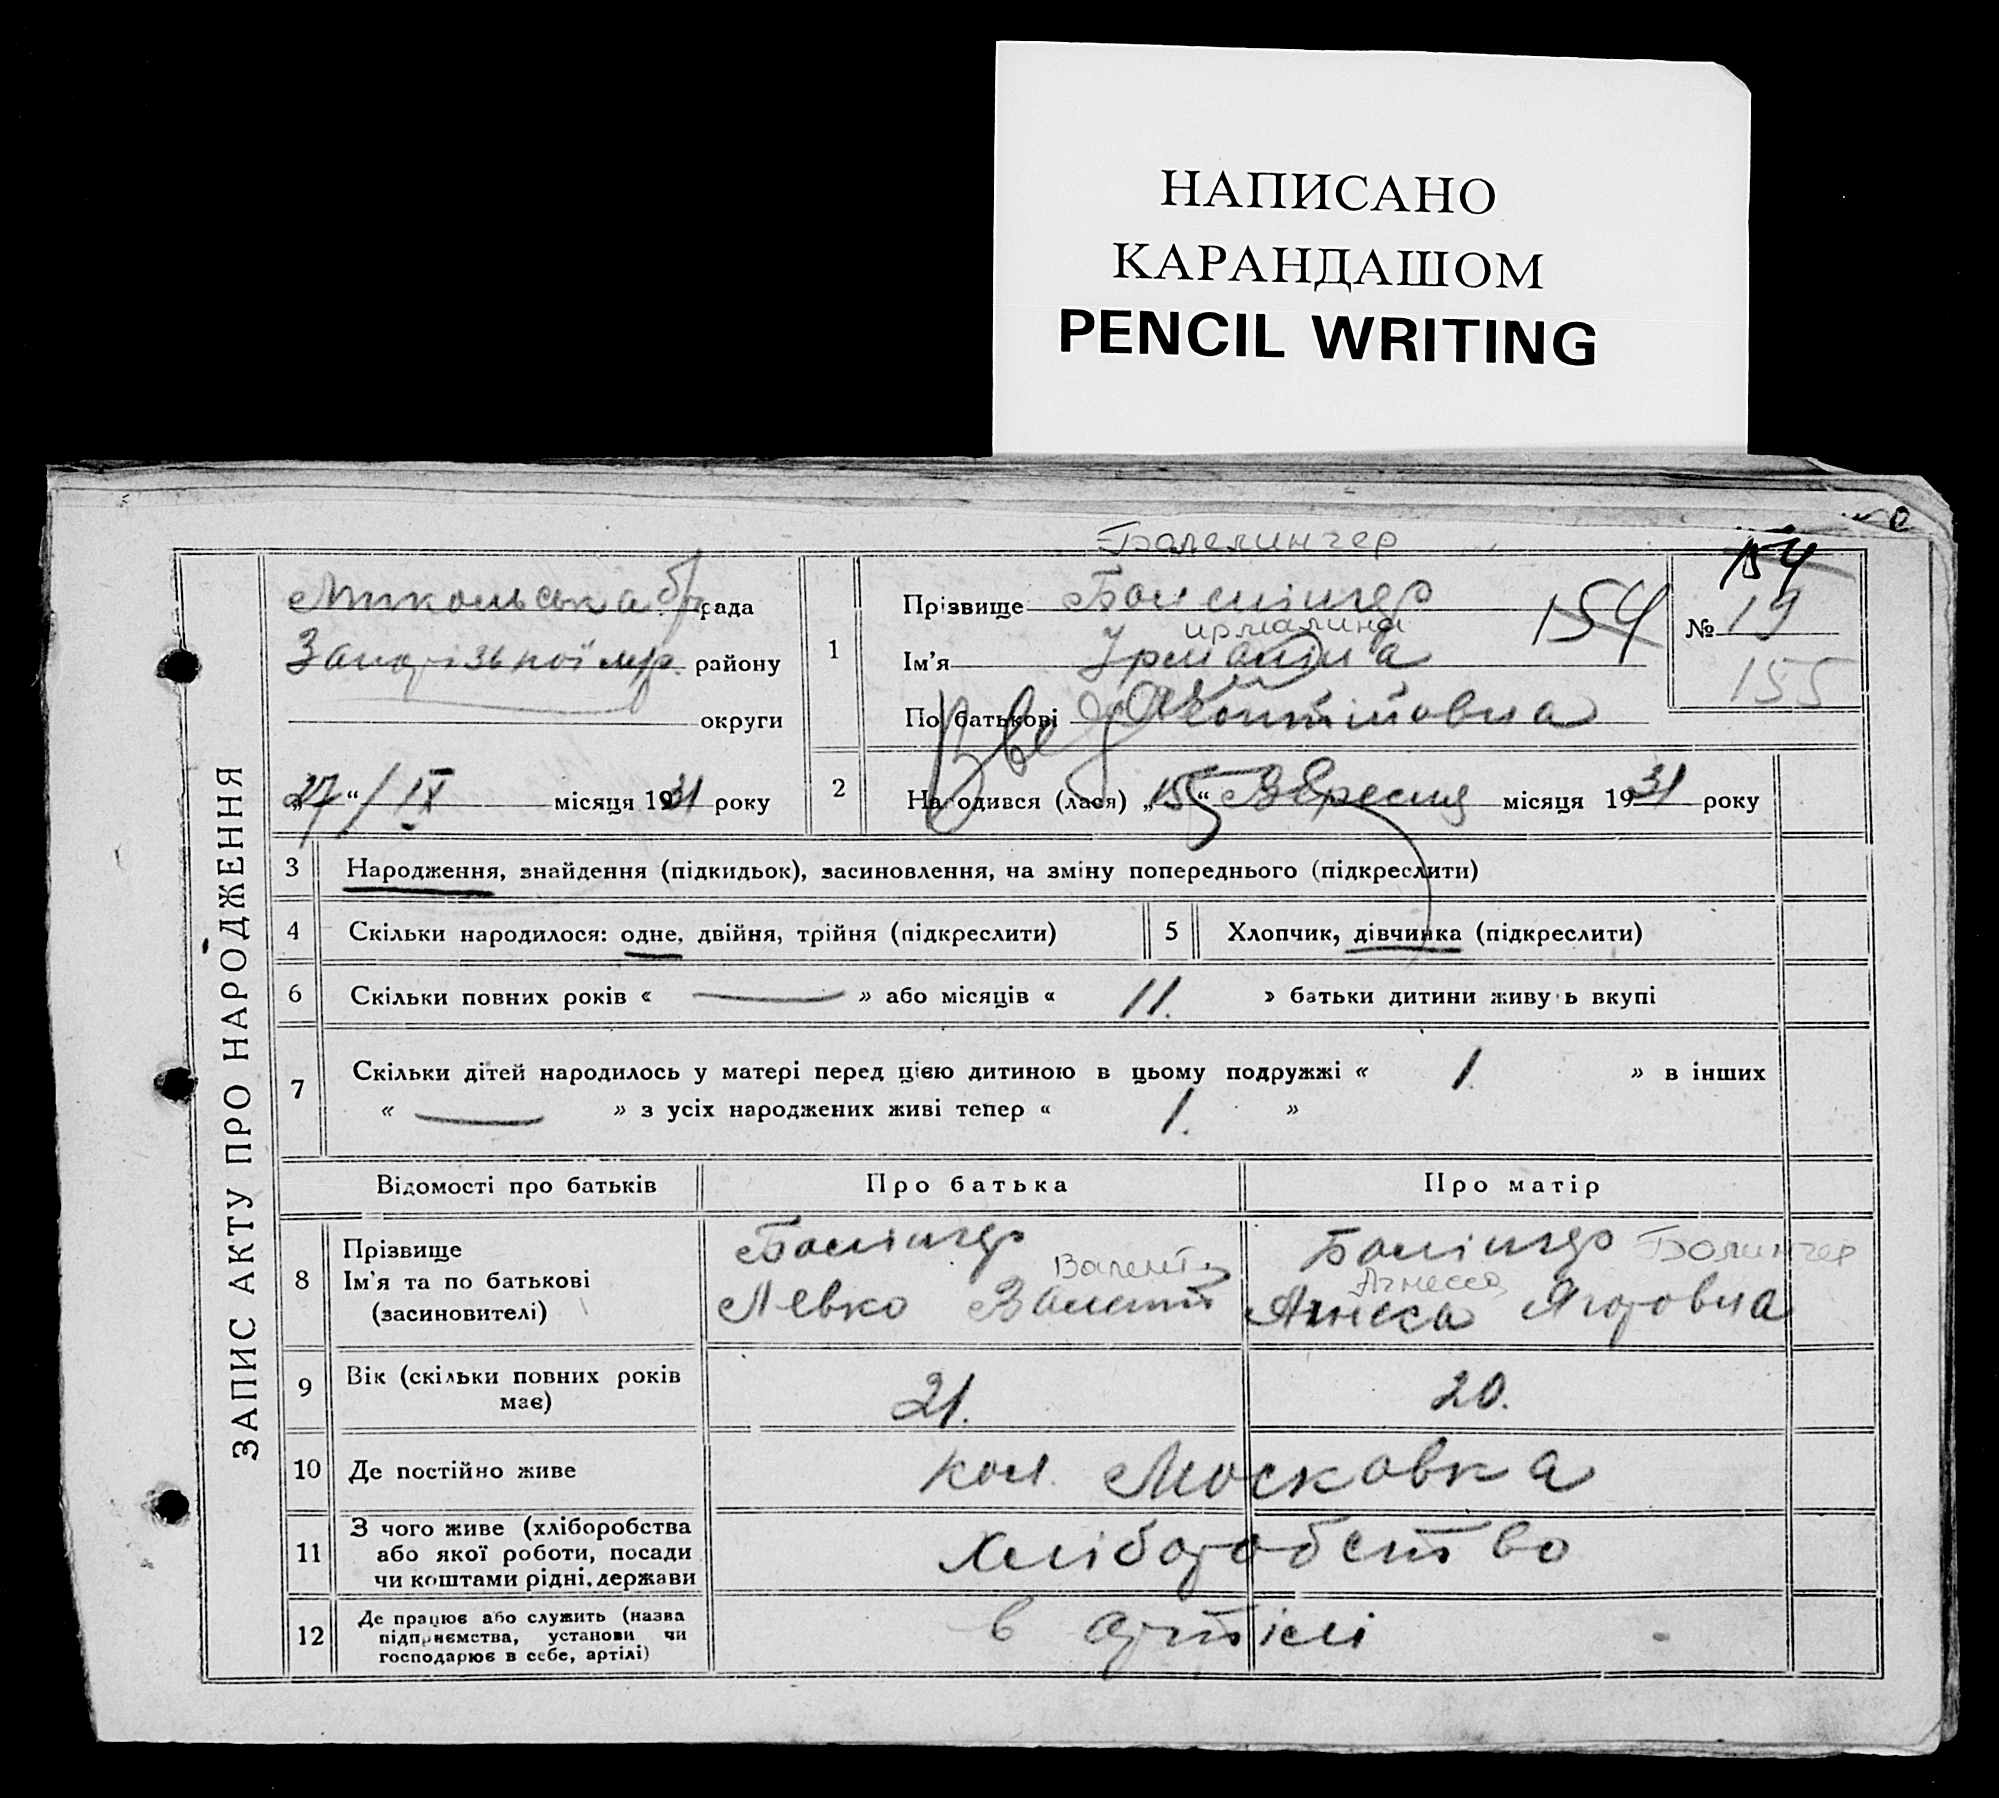 НАПИСАНО
КАРАНДАШОМ
PENCIL WRITING
ЗАПИС АКТУ ПРО НАРОДЖЕННЯ
Микольська рада
Запорізької мр. району
округи
27/IX місяця 1931 року
1
Прізвище
Ім'я Ирмалина
По батькові
154
154
№ 19
155
2 Народився (лася) „15“ Вересня місяця 1931 року
3 Народження, знайдення (підкидьок), засиновлення, на зміну попереднього (підкреслити)
4 Скільки народилося: одне, двійня, трійня (підкреслити)
5 Хлопчик, дівчинка (підкреслити)
6 Скільки повних років « — » або місяців « 11. » батьки дитини живуть вкупі
7 Скільки дітей народилось у матері перед цією дитиною в цьому подружжі « 1. » в інших
« — » з усіх народжених живі тепер « 1. »
Відомості про батьків Про батька Про матір
8 Прізвище Болінгер Болінгер Болингер
Ім'я та по батькові Валент Агнесса
(засиновителі) Левко Валент Агнеса Ягоровна
9 Вік (скільки повних років має) 21. 20.
10 Де постійно живе кол. Московка
11 З чого живе (хліборобства
або якої роботи, посади
чи коштами рідні, держави хліборобство
12 Де працює або служить (назва
підприємства, установи чи
господарює в себе, артілі) в артілі